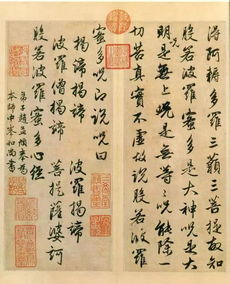 得阿耨多羅三藐三菩提故知
般若波羅蜜多是大神呪是大
明呪是無上呪是無等等呪能除一
切苦真實不虛故說般若波羅
蜜多呪即說呪曰
揭諦揭諦 波羅揭諦
波羅僧揭諦 菩提薩婆訶
般若波羅蜜多心經
弟子趙孟頫奉為
本師中峯和尚書